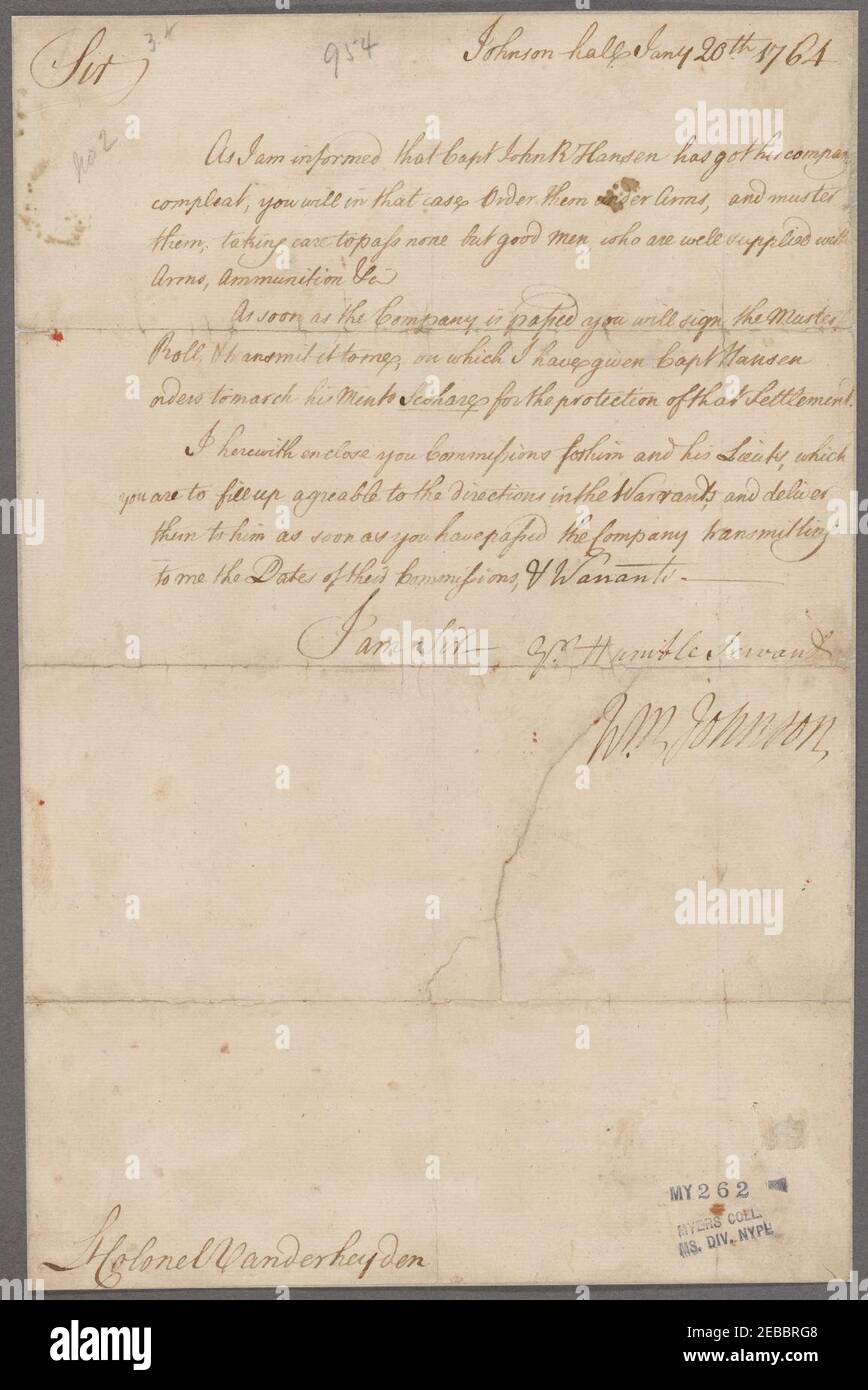 Johnson hall Jany 20th 1764
Sir
3.4
954
No 2
As I am informed that Capt John R Hansen has got his company
compleat, you will in that case Order them under Arms, and muster
them, taking care to pass none but good men who are well supplied with
Arms, Ammunition &c
As soon as the Company is passed you will sign the Muster
Roll, & transmit it to me, on which I have given Capt Hansen
orders to march his Men to Scohare for the protection of that Settlement.
I herewith enclose you Commissions for him and his Lieuts, which
you are to fill up agreable to the directions in the Warrants, and deliver
them to him as soon as you have passed the Company transmitting
to me the Dates of their Commissions, & Warrants.
I am Sir Yr. Humble Servant
Wm. Johnson
MY 262
MYERS COLL.
MS. DIV. NYPL
Lt Colonel Vanderheyden
alamy
Image ID: 2EBBRG8
www.alamy.com